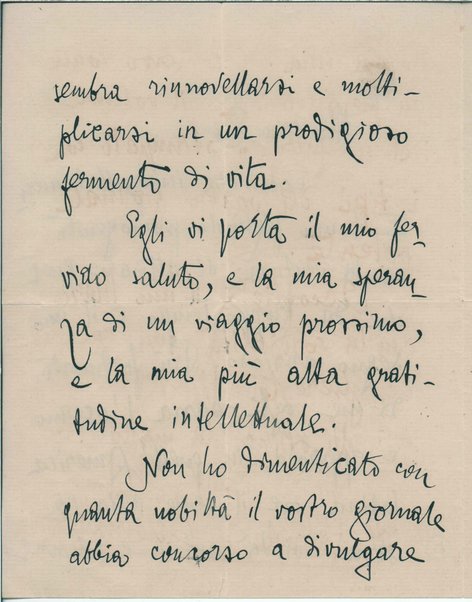 sembra rinnovellarsi e molti-
plicarsi in un prodigioso
fermento di vita.
Egli vi porta il mio fer-
vido saluto, e la mia speran-
za di un viaggio prossimo,
e la mia più alta grati-
tudine intellettuale.
Non ho dimenticato con
quanta nobiltà il vostro giornale
abbia concorso a divulgare